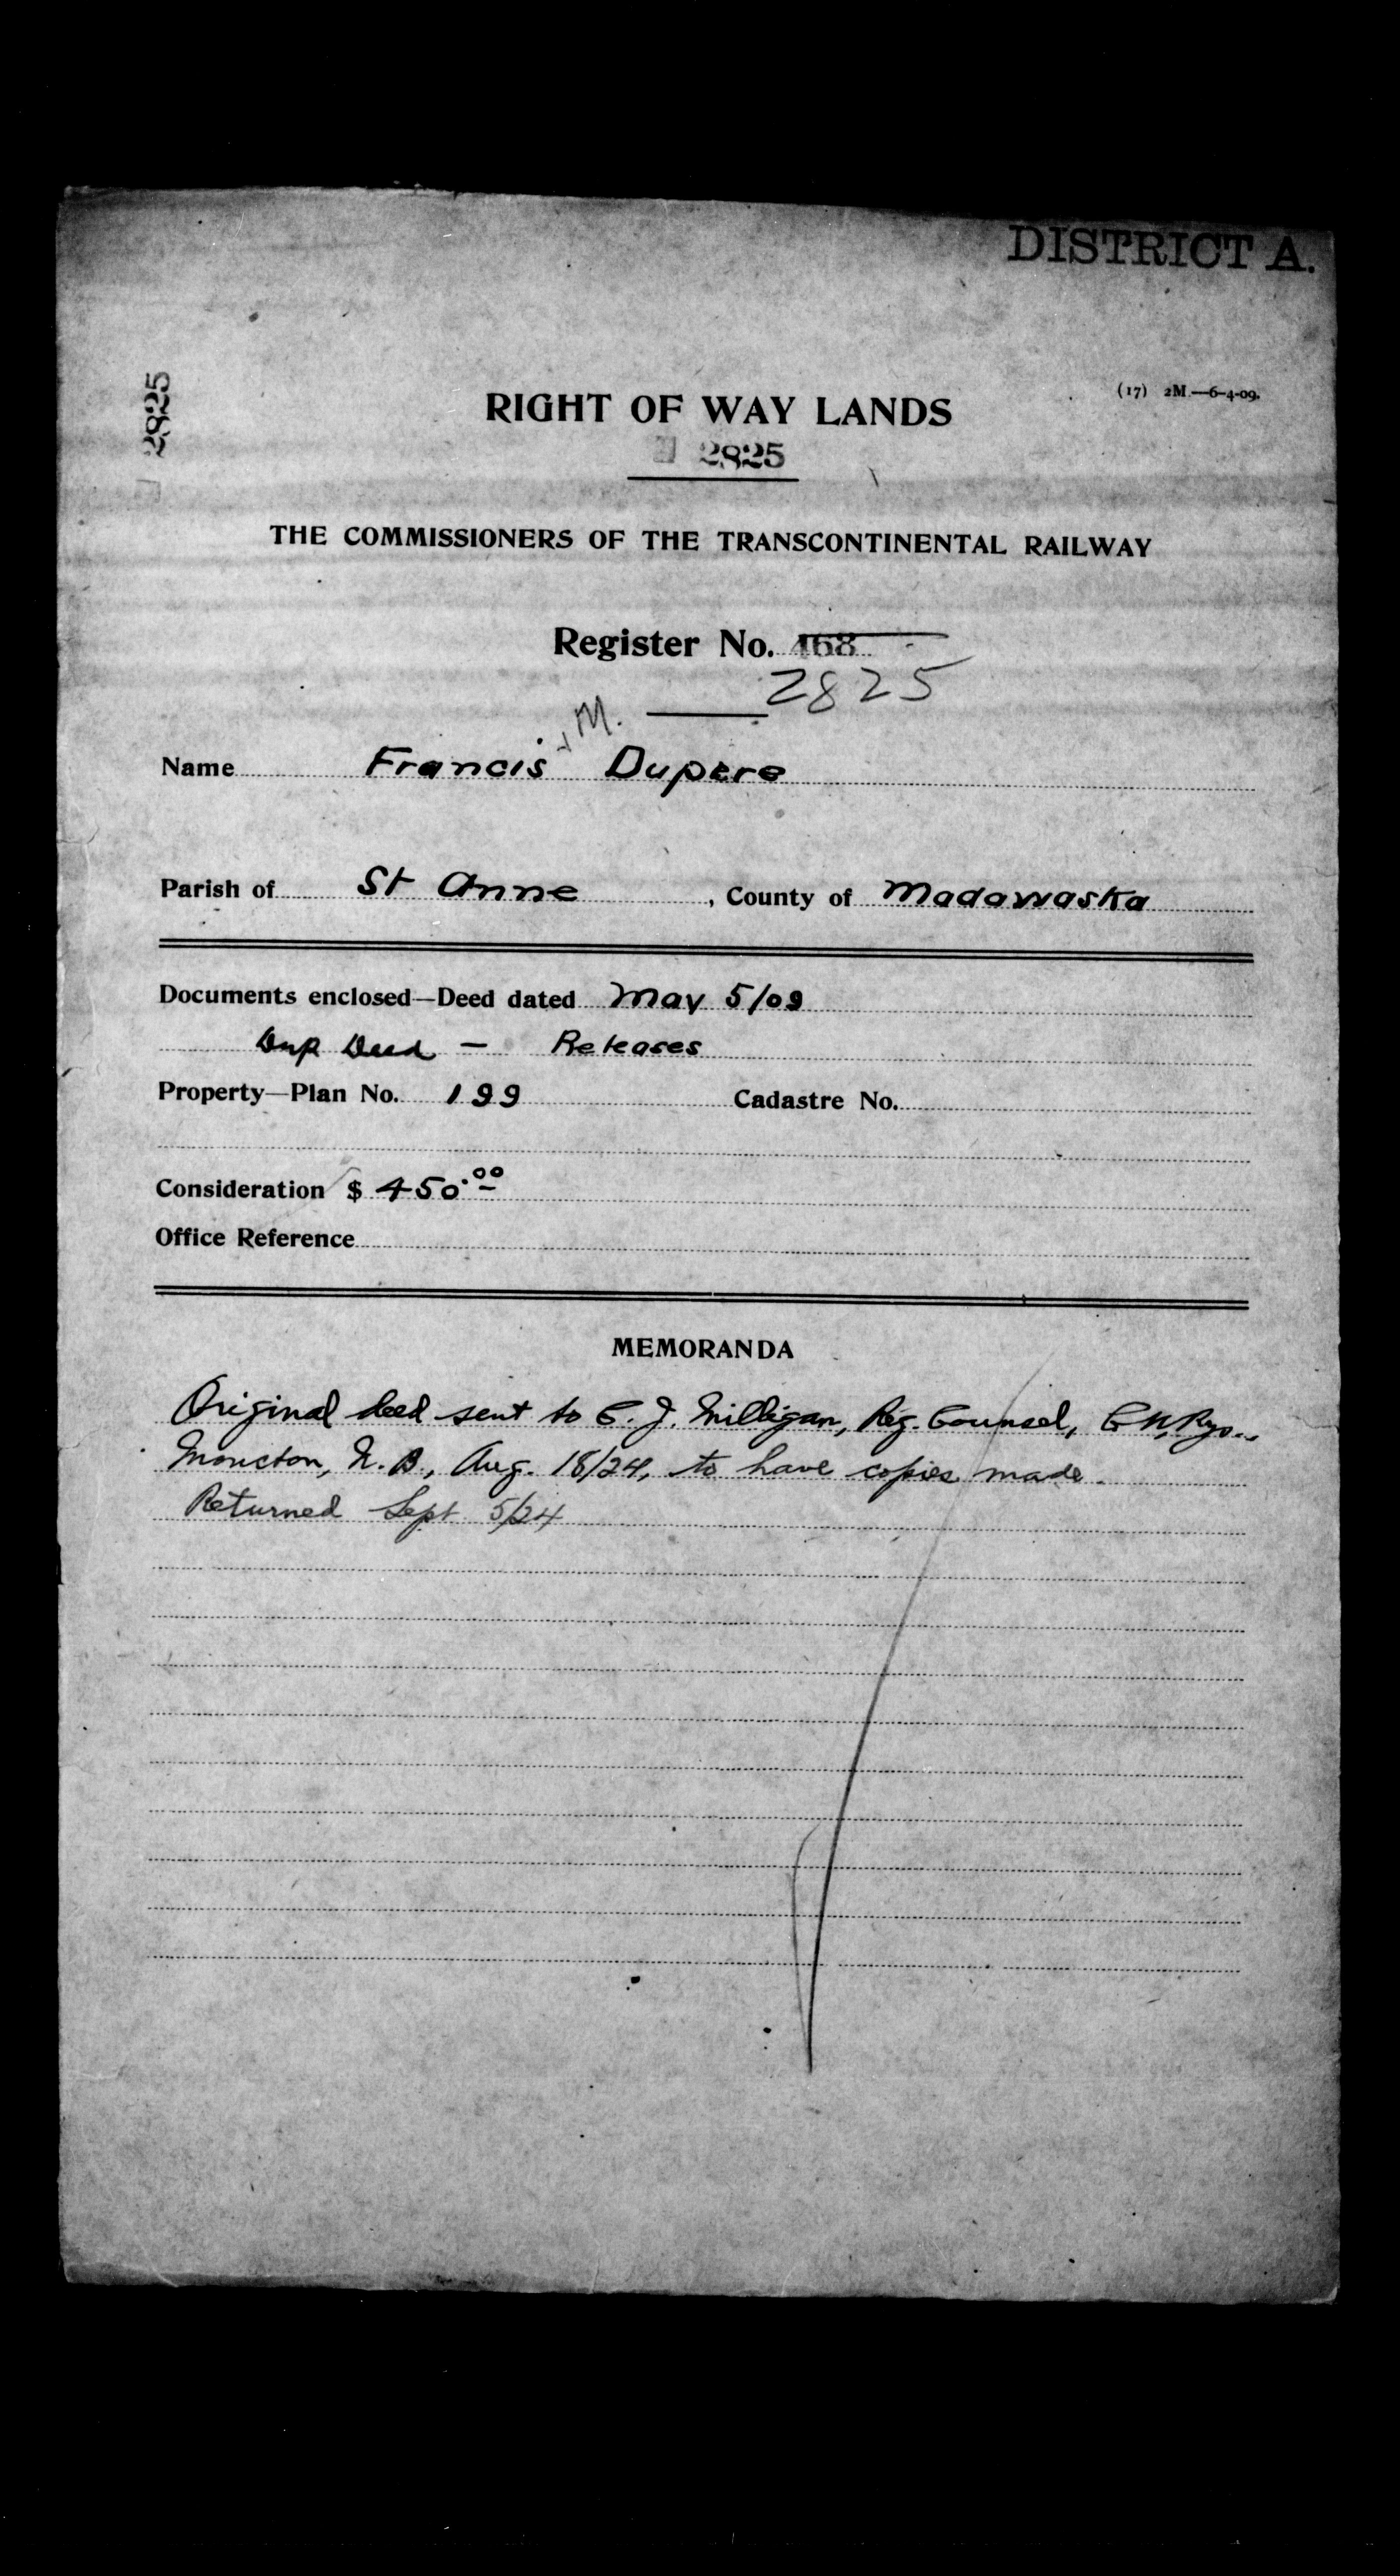 DISTRICT A.
2825
(17) 2M.—6-4-09.
RIGHT OF WAY LANDS
2825
THE COMMISSIONERS OF THE TRANSCONTINENTAL RAILWAY
Register No. 468
2825
M.
Name Francis Dupere
Parish of St Anne, County of Madawaska
Documents enclosed—Deed dated May 5/09
Dup Deed — Releases
Property—Plan No. 199 Cadastre No.
Consideration $ 450.00
Office Reference
MEMORANDA
Original deed sent to C. J. Milligan, Reg. Counsel, C N Rys.,
Moncton, N. B., Aug. 18/24, to have copies made.
Returned Sept 5/24